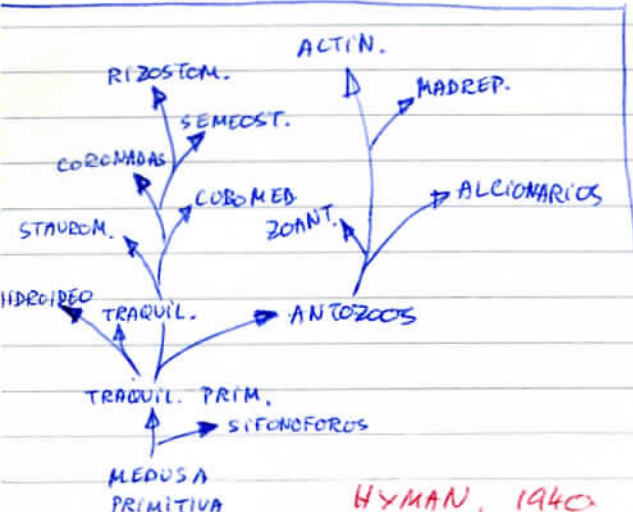 ACTIN.
RIZOSTOM.
MADREP.
SEMEOST.
CORONADAS
CUBOMED
ALCIONARIOS
ZOANT.
STAUROM.
HIDROIDEO
TRAQUIL.
ANTOZOOS
TRAQUIL. PRIM.
SIFONOFOROS
MEDUSA
PRIMITIVA
HYMAN, 1940